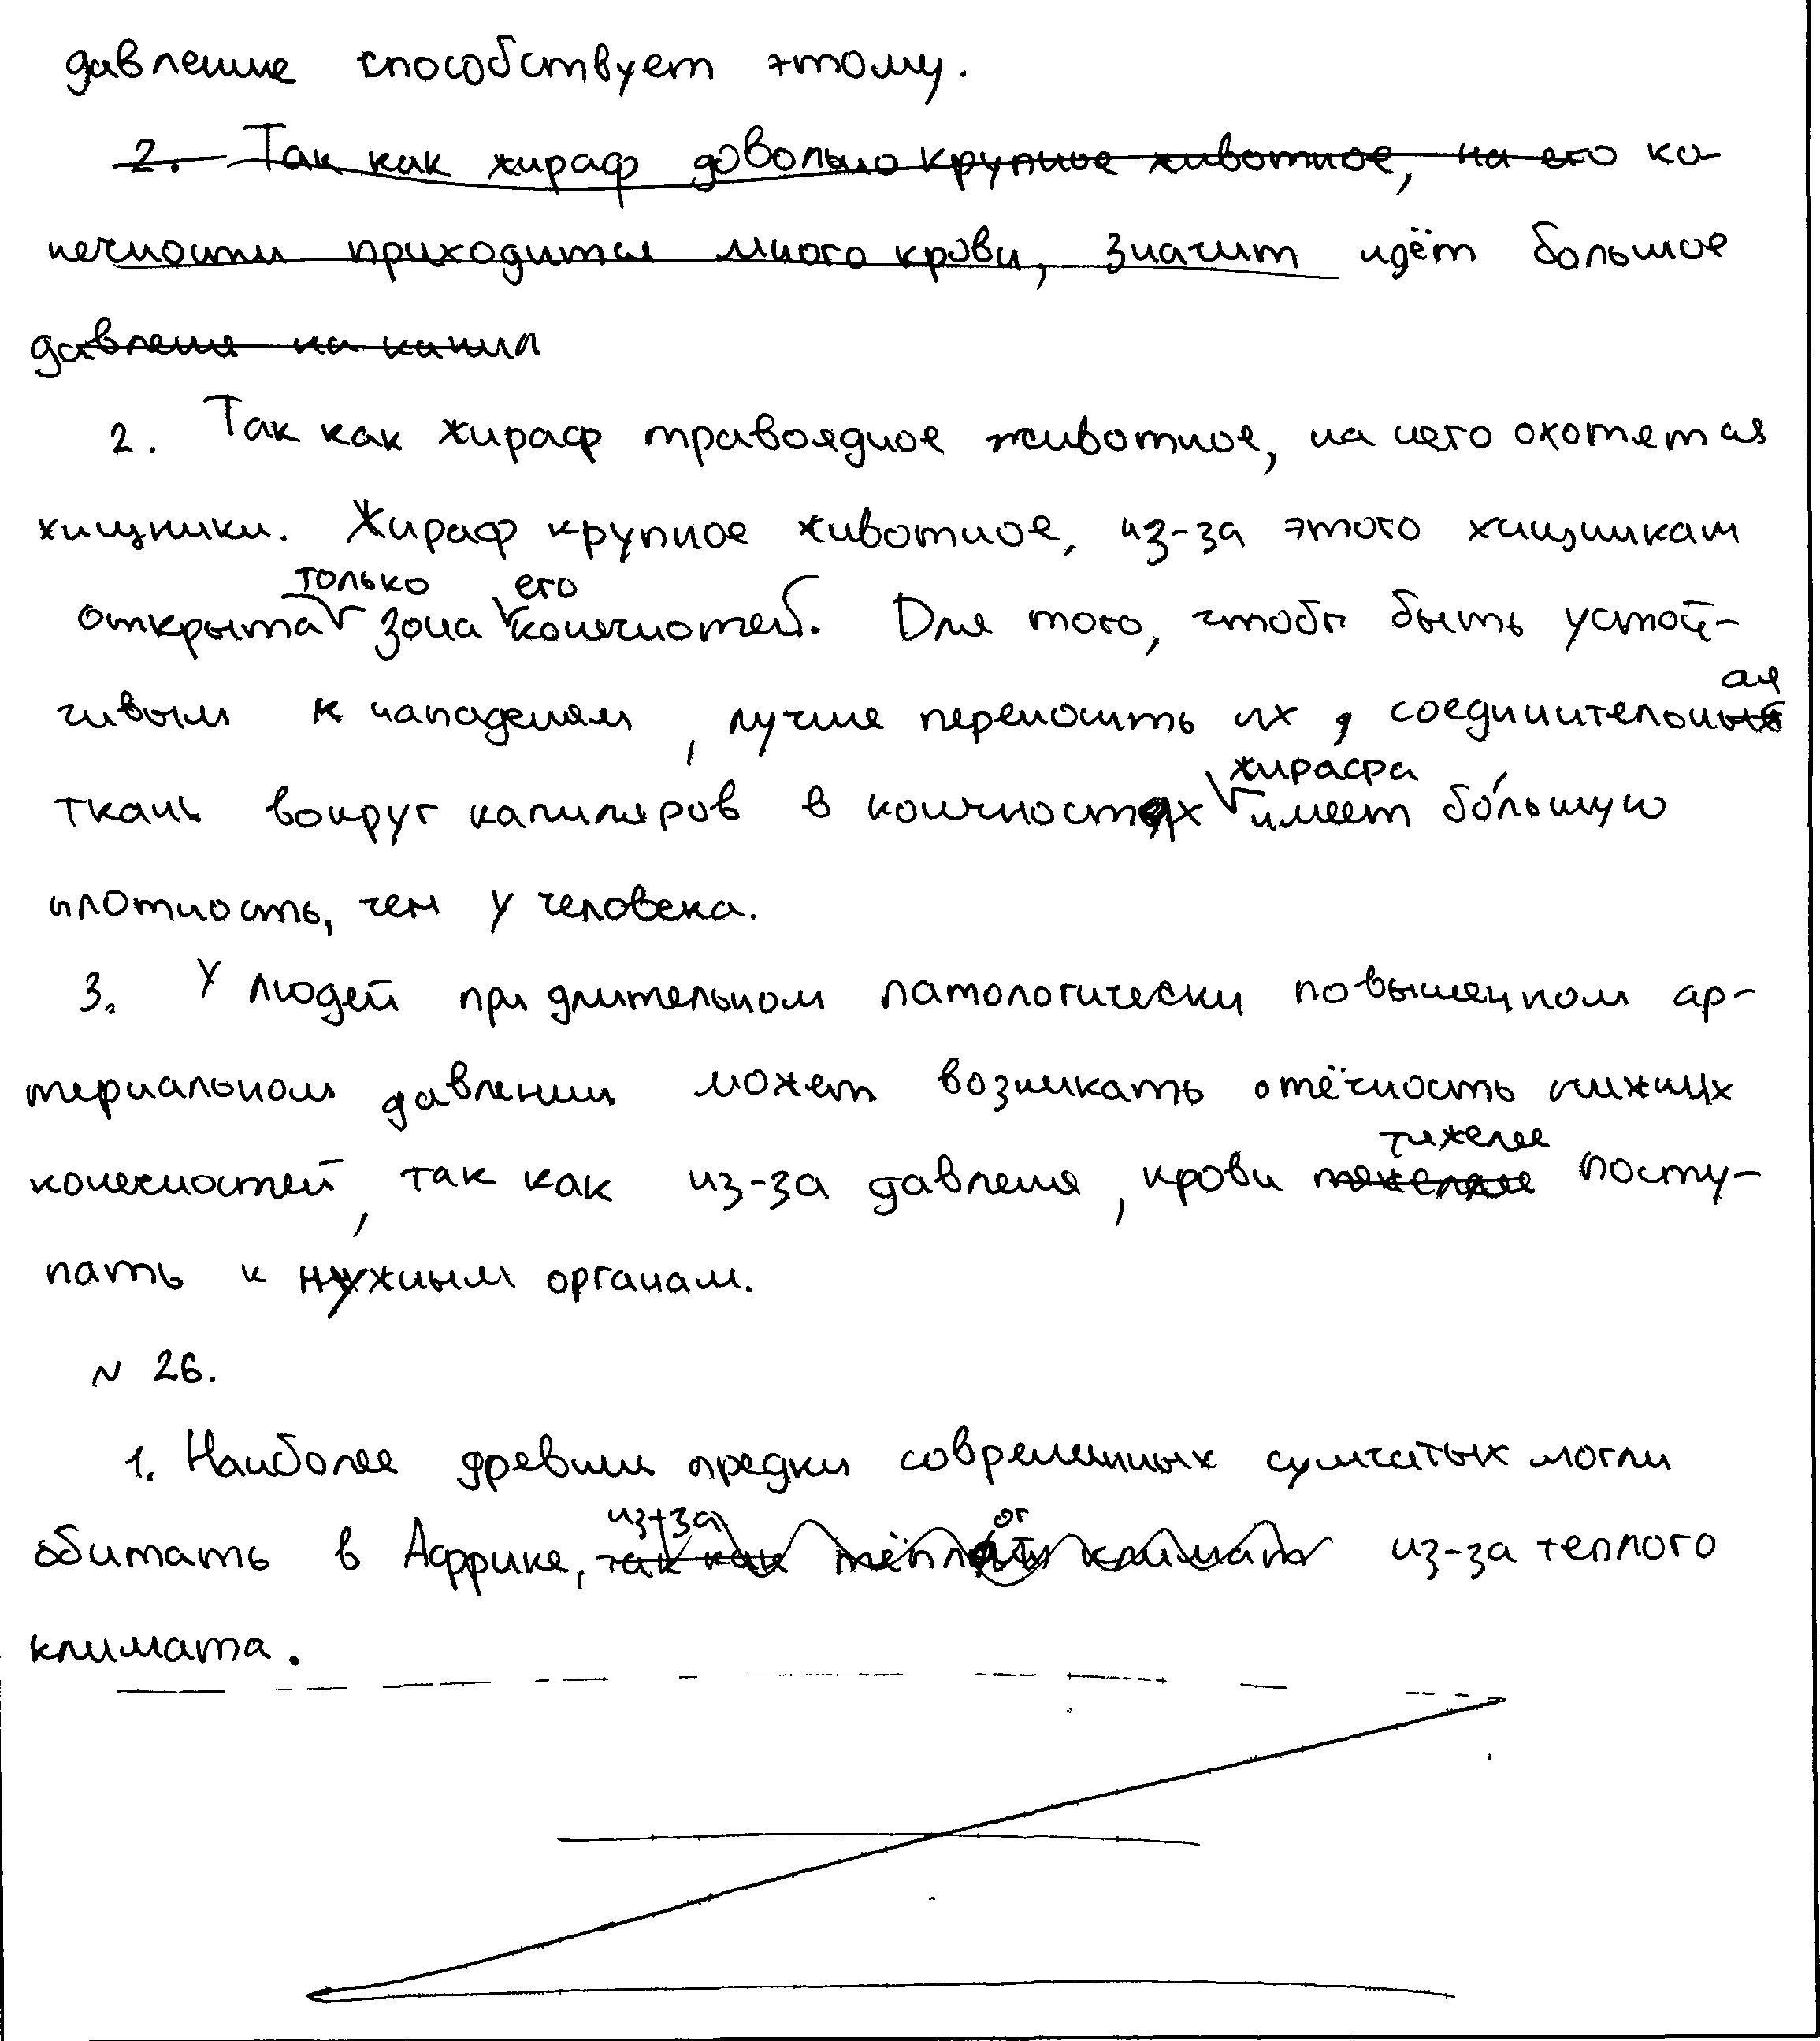 давление способствует этому.
2. Так как жираф довольно крупное животное, на его ко-
нечности приходится много крови, значит идёт большое
давления на капил
2. Так как жираф травоядное животное, на него охотятся
хищники. Жираф крупное животное, из-за этого хищникам
открыта только зона его конечностей. Для того, чтобы быть устой-
чивым к нападениям, лучше переносить их, соединительная
ткань вокруг капиляров в конечностях жирафа имеет бо́льшую
плотность, чем у человека.
3. У людей при длительном патологически повышенном ар-
териальном давлении может возникать отёчность нижних
конечностей, так как из-за давления, крови тяжелее посту-
пать к нужным органам.
№ 26.
1. Наиболее древнии предки современных сумчатых могли
обитать в Аффрике, из-за теплого
климата.